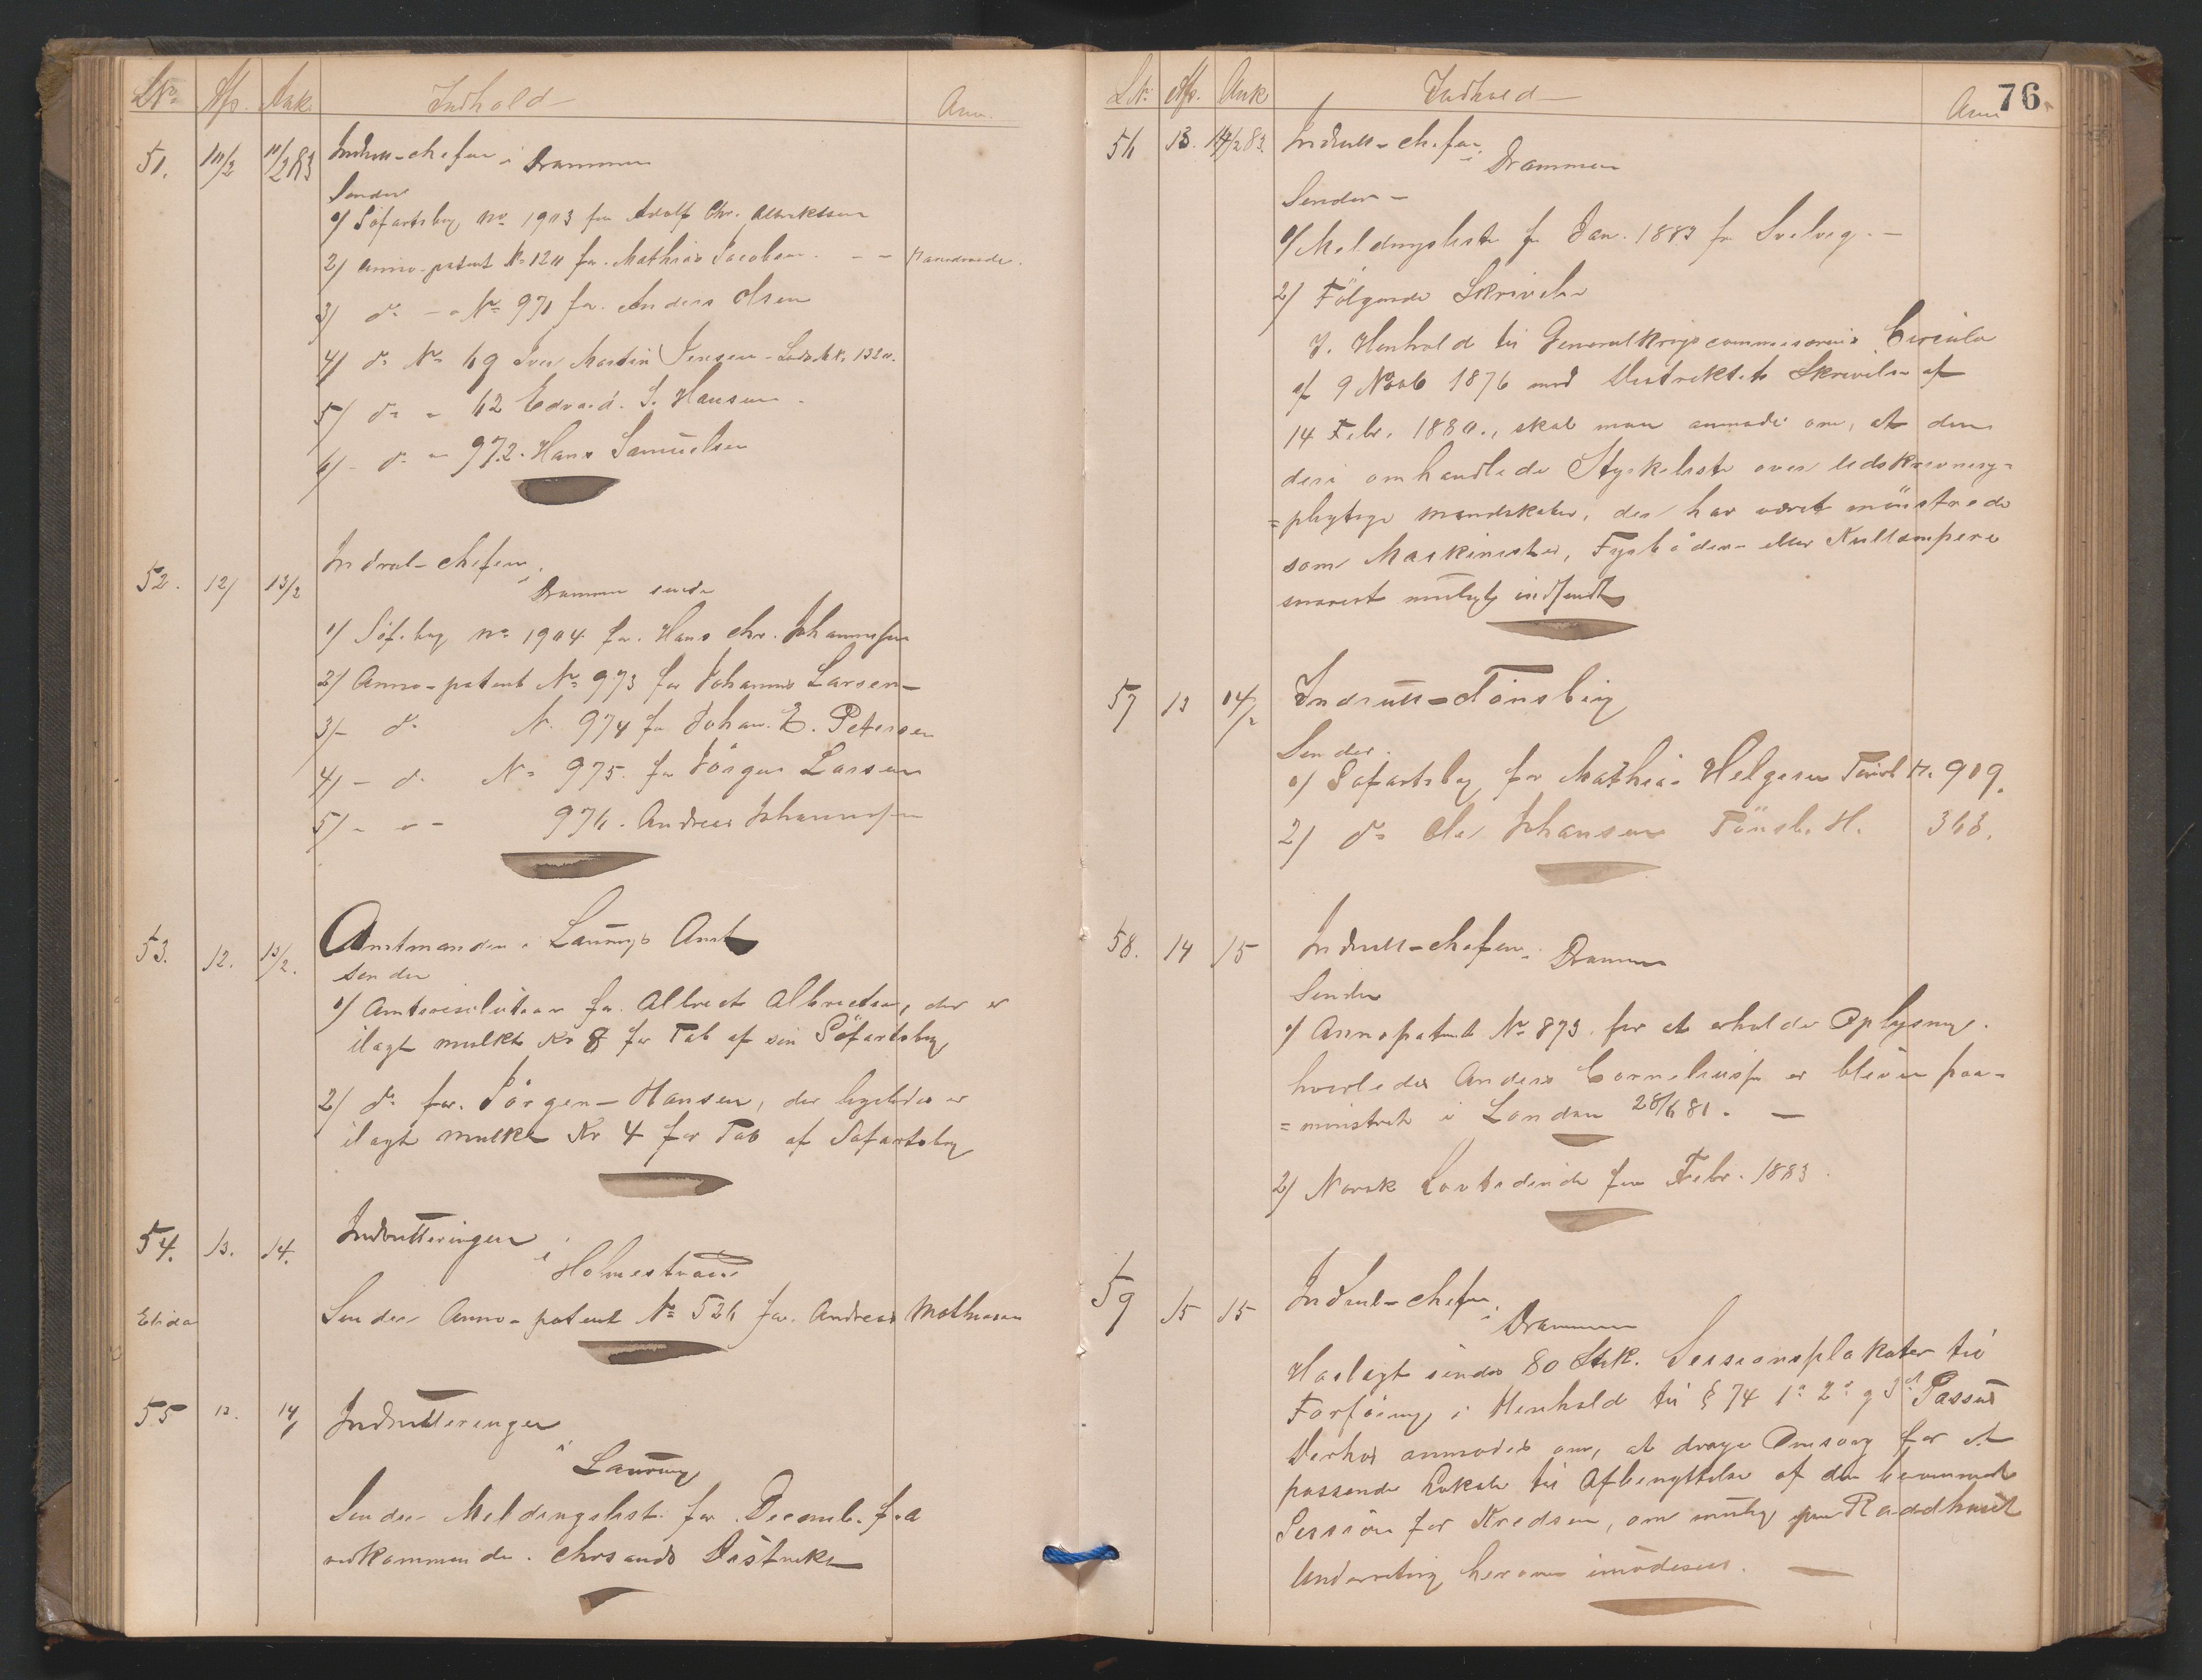 LNo Afs. Ank. Indhold Anm.
51. 10/2 11/2 83 Indrull-chefen i Drammen
Sender
1/ Söfartsbog No 1903 for Adolf Chr. Albriktsen
2/ Anno-patent No 1211 for Mathias Jacobsen
3/ do No 971 for Anders Olsen
4/ do No 69 Iver Martin Jensen
5/ do 62 Edvard S. Hansen
6/ do 972. Hans Samuelsen
52. 12/ 13/2 Indrul-chefen
i Drammen sender
1/ Söf.bog No 1904 for Hans Chr. Johannessen
2/ Anno-patent No 973 for Johannes Larsen
3/ do N. 974 for Johan E. Petersen
4/ do No 975 for Jörgen Larsen
5/ 976. Andreas Johannessen
53. 12. 13/2. Amtmanden i Laurvigs Amt
sender
1/ Amtsresolution for Albrect Albrectsen, der er
ilagt mulkt Kr 8 for Tab af sin Söfartsbog
2/ do for Jörgen Hansen, der ligeledes er
ilagt mulkt Kr 4 for Tab af Söfartsbog
54. 13. 14. Indrulleringen
i Holmestrand
Sender Anno-patent No 526 for Andreas Mathiesen
55 13. 14/ Indrulleringen
i Laurvig
Sender Meldingslist. for Decemb. f.a
vedkommende Chrsands Distrikt
LNr: Afs. Ank Indhold Anm 76
56 13. 14/2 83. Indrull-chefen
i Drammen
Sender
1/ Meldingsliste for Jan. 1883 fr Svelvig.
2/ Fölgende Skrivelse
I Henhold til Generalkrigscommissariets Circulær
af 9 Novb 1876 med Distriktets Skrivelse af
14 Febr. 1880., skal man anmode om, at den
deri omhandlede Styrkeliste over udskrivnings=
=pligtige mandskaber, der har været mönstrede
som Maskinister, Fyrbödere eller Kullempere
snarest muligt indsendt
57 13 14/2 Indrull-Tönsberg
Sender.
1/ Söfartsbog for Mathias Helgesen 909.
2/ do Ole Johansen Tönsb. H. 363.
58. 14 15 Indrull-chefen i Drammen
Sender
1/ Annopatent No 873 for at erholde Oplysning
hvorledes Anders Corneliussen er bleven paa=
=mönstret i London 28/6 81.
2/ Norsk Lovtidende for Febr. 1883.
59 15 15 Indrul-chefen
i Drammen
Hoslagt sendes 80 Stk. Sessionsplakater til
Forföining i Henhold til § 74 1ste 2den og 3die Passus
Derhos anmodes om, at drage Omsorg for et
passende Lokale til Afbenyttelse af den berammede
Session for Kredsen, om mulig paa Raadhuset
Underretning herom imödesees.